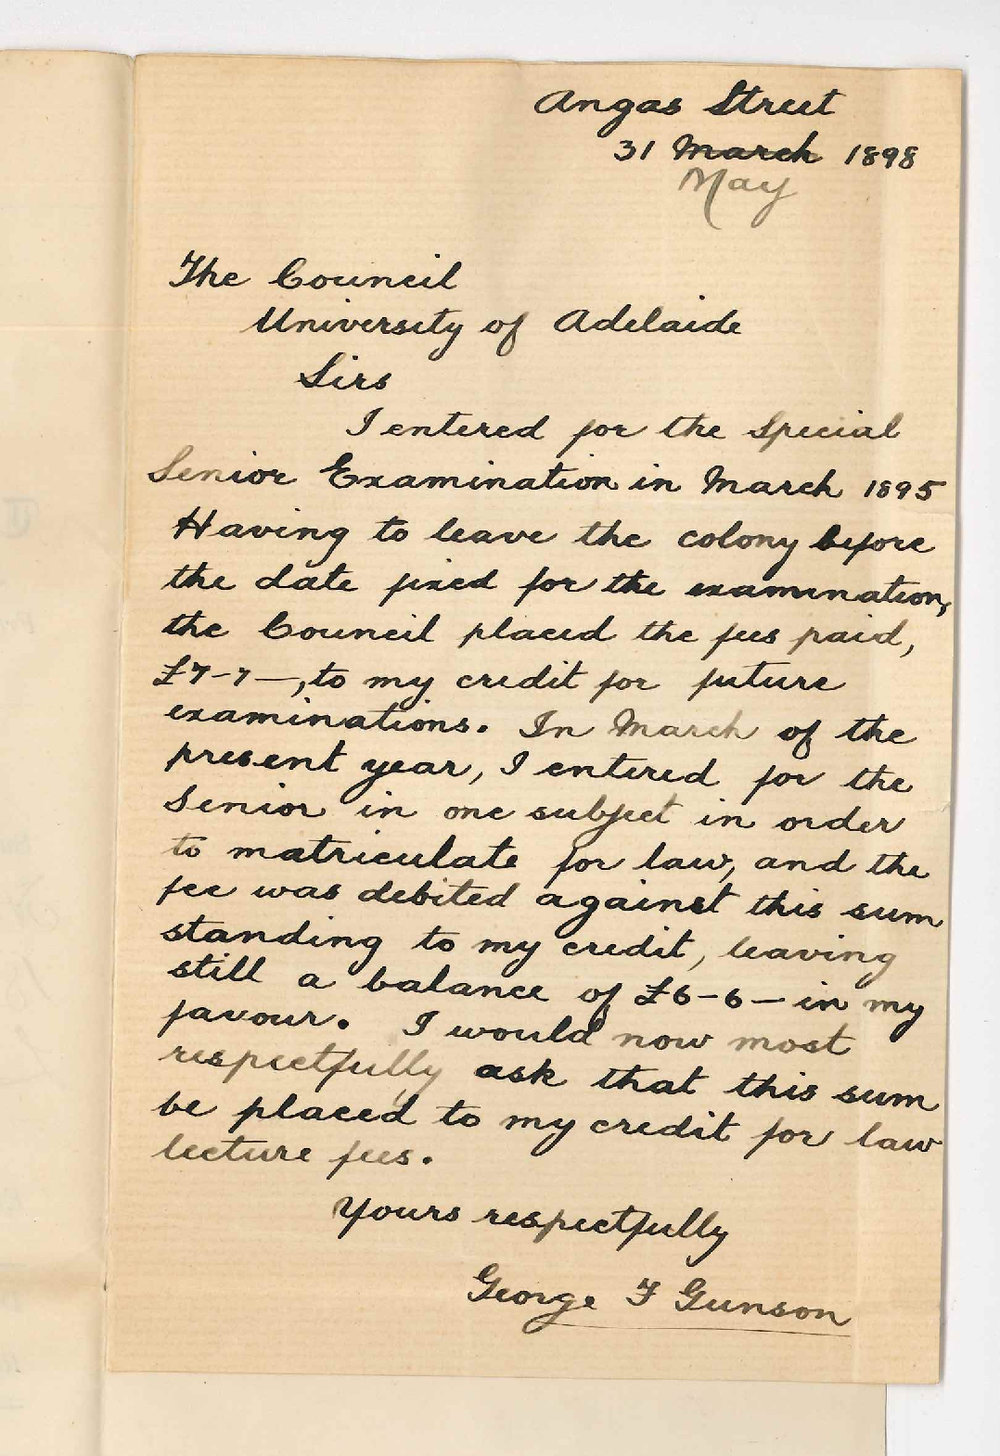 Angas Street
31 March 1898
May
The Council
University of Adelaide
Sirs
I entered for the Special
Senior Examination in March 1895
Having to leave the colony before
the date fixed for the examination,
the Council placed the fees paid,
£7-7-, to my credit for future
examinations. In March of the
present year, I entered for the
Senior in one subject in order
to matriculate for law, and the
fee was debited against this sum
standing to my credit, leaving
still a balance of £6-6- in my
favour. I would now most
respectfully ask that this sum
be placed to my credit for law
lecture fees.
Yours respectfully
George F Gunson